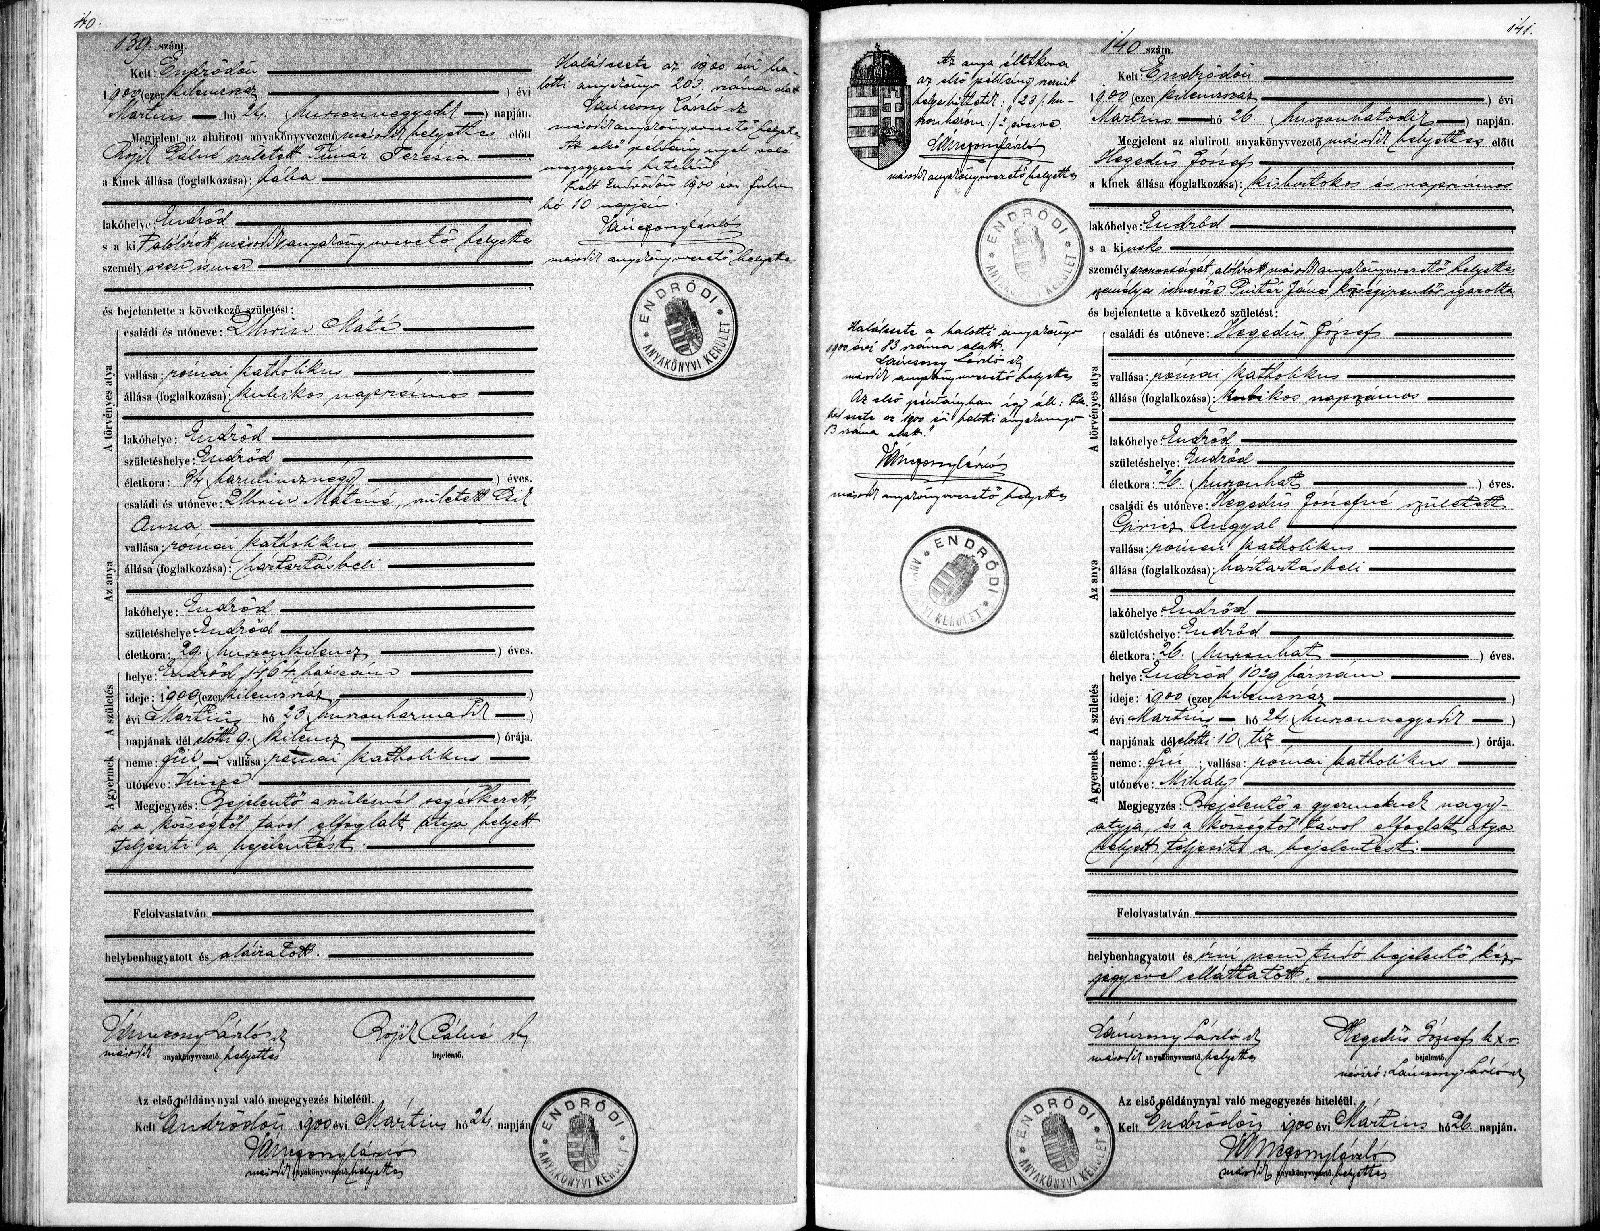 140.
139. szám.
Kelt Endrődön
1900 (ezer kilenczszáz ) évi
Martius hó 24. (huszonnegyedik ) napján.
Megjelent az alulirott anyakönyvezető második helyettes előtt
Rojik Pálné született Timár Terézia
a kinek állása (foglalkozása): bába
lakóhelye: Endrőd
s a ki t alólirott második anyakönyvvezető helyettes
személyesen ismer
és bejelentette a következő születést:
A törvényes atya
családi és utóneve: Máté
vallása: római katholikus
állása (foglalkozása): kubikos napszámos
lakóhelye: Endrőd
születéshelye: Endrőd
életkora: 34 (harmincznégy ) éves.
Az anya
családi és utóneve: Máténé, született
Anna
vallása: római katholikus
állása (foglalkozása): háztartásbeli
lakóhelye: Endrőd
születéshelye: Endrőd
életkora: 29 (huszonkilencz ) éves.
A születés
helye: Endrőd 1464. házszám
ideje: 1900 (ezer kilenczszáz )
évi Martius hó 23. (huszonharmadik )
napjának dél előtti 9. (kilencz ) órája.
A gyermek
neme: fiú ; vallása: római katholikus
utóneve: Vincze
Megjegyzés: Bejelentő a szülésnél segédkezett,
és a községtől távol elfoglalt atya helyett
teljesíti a bejelentést.
Felolvastatván,
helybenhagyatott és aláiratott.
Lánczony László sk Rojik Pálné sk
második anyakönyvvezető helyettes bejelentő.
Az első példánynyal való megegyezés hiteléül.
Kelt Endrődön 1900 évi Mártius hó 24. napján
Lánczony László
második anyakönyvvezető helyettes
ENDRŐDI ANYAKÖNYVI KERÜLET
Halálesete az 1900 évi ha-
lotti anyakönyv 203. száma alatt
Lánczony László sk
második anyakönyvvezető helyettes
Az első példánynyal való
megegyezés hiteléül
Kelt Endrődön 1900 évi
hó 10 napján.
Lánczony László
második anyakönyvvezető helyettes
ENDRŐDI ANYAKÖNYVI KERÜLET
141.
Az anya életkora
az első példány szerint
helyesbittetik: "23 /: hu-
szonhárom :/" évesre
Lánczony László
második anyakönyvvezető helyettes
ENDRŐDI ANYAKÖNYVI KERÜLET
Halálesete a halotti anyakönyv
1900 évi 83 száma alatt.
Lánczony László sk
második anyakönyvvezető helyettes
Az első példányban így áll: "Ha-
lálesete az 1900 évi halotti anyakönyv
83 száma alatt."
Lánczony László
második anyakönyvvezető helyettes
ENDRŐDI ANYAKÖNYVI KERÜLET
140 szám.
Kelt Endrődön
1900 (ezer kilenczszáz ) évi
Martius hó 26. (huszonhatodik ) napján.
Megjelent az alulirott anyakönyvvezető második helyettes előtt
Hegedüs József
a kinek állása (foglalkozása): kisbirtokos és napszámos
lakóhelye: Endrőd
s a kinek
személyazonosságát, alólirott második anyakönyvvezető helyettes
személyes ismerőse Pintér János községi rendőr igazolta
és bejelentette a következő születést:
A törvényes atya
családi és utóneve: Hegedüs József
vallása: római katholikus
állása (foglalkozása): kubikos napszámos
lakóhelye: Endrőd
születéshelye: Endrőd
életkora: 26. (huszonhat ) éves.
Az anya
családi és utóneve: Hegedüs Józsefné született
Giricz Angyal
vallása: római katholikus
állása (foglalkozása): háztartásbeli
lakóhelye: Endrőd
születéshelye: Endrőd
életkora: 26. (huszonhat ) éves.
A születés
helye: Endrőd 1029 házszám
ideje: 1900 (ezer kilenczszáz )
évi Martius hó 24. (huszonnegyedik )
napjának dél előtti 10 (tíz ) órája.
A gyermek
neme: fiú ; vallása: római katholikus
utóneve: Mihály
Megjegyzés: Bejelentő a gyermeknek nagy-
atyja, és a községtől távol elfoglalt atya
helyett teljesíti a bejelentést.
Felolvastatván
helybenhagyatott és írni nem tudó bejelentő kéz-
jegyével elláttatott.
Lánczony László sk Hegedüs József kxv.
második anyakönyvvezető helyettes bejelentő.
névíró: Lánczony László sk
Az első példánynyal való megegyezés hiteléül.
Kelt Endrődön 1900 évi Mártius hó 26. napján.
Lánczony László
második anyakönyvvezető helyettes
ENDRŐDI ANYAKÖNYVI KERÜLET